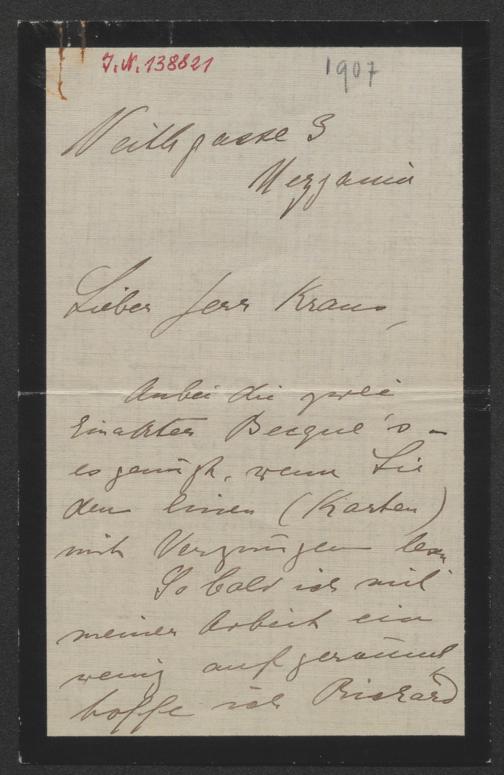 J.N. 138821
1907
Veithgasse 3
Mezzanin
Lieber Herr Kraus,
Anbei die zwei
Einakter Becque's –
es genügt, wenn Sie
den Einen (Karten)
mit Vergnügen lesen
So bald ich mit
meiner Arbeit ein
wenig aufgeräumt
hoffe ich Richard